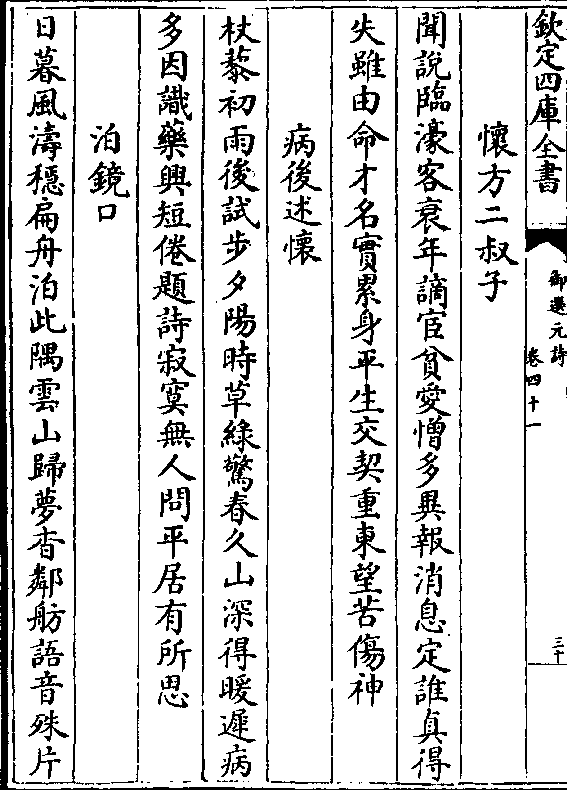 欽定四庫全書
御選元詩
卷四十一
三十
懷方二叔子
聞說臨濠客衰年謫宦貧愛憎多異報消息定誰真得
失雖由命才名實累身平生交契重東望苦傷神
病後述懷
杖藜初雨後試步夕陽時草綠驚春久山深得暖遲病
多因識藥興短倦題詩寂寞無人問平居有所思
泊鏡口
日暮風濤穩扁舟泊此隅雲山歸夢杳鄰舫語音殊片